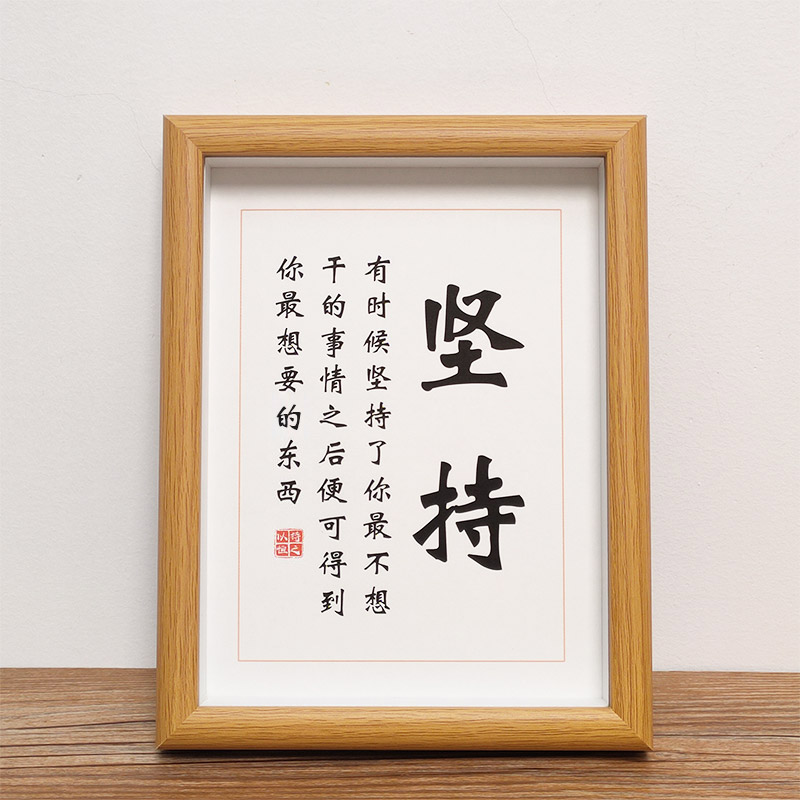 坚持
有时候坚持了你最不想
干的事情之后便可得到
你最想要的东西
持之以恒